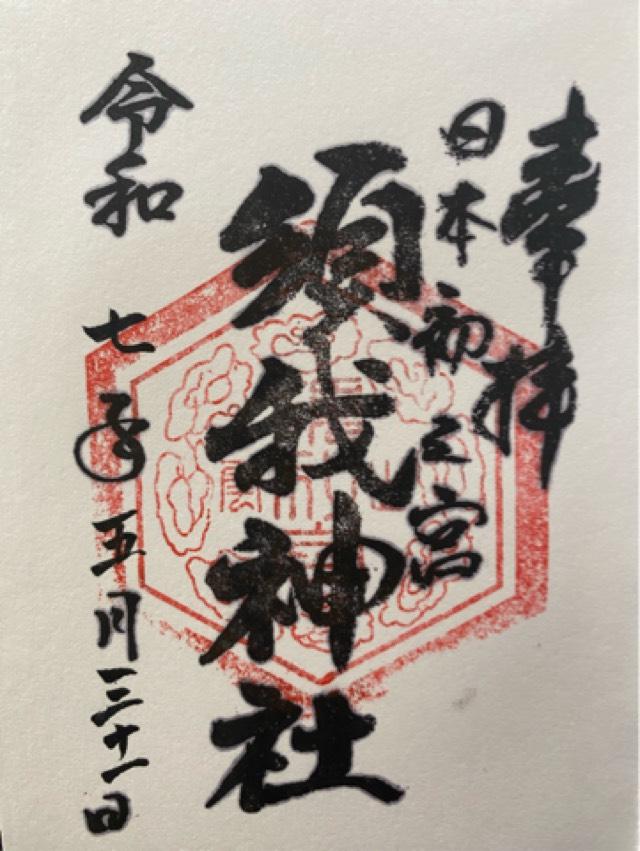 奉拝
日本初之宮
須我神社
令和七年五月三十一日